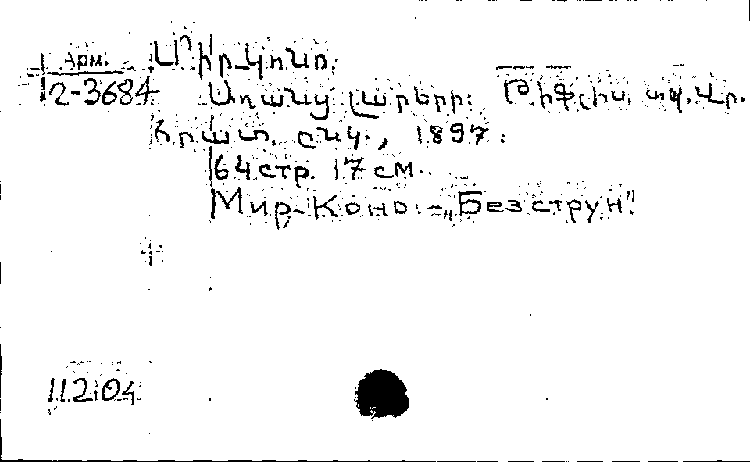 Арм. Միր-Կոնօ.
2-3684 Առանց լարերի. Թիֆլիս, տպ. Վր.
հրատ. ընկ., 1897.
64 стр. 17 см.
Мир-Коно - „Без струн".
112104